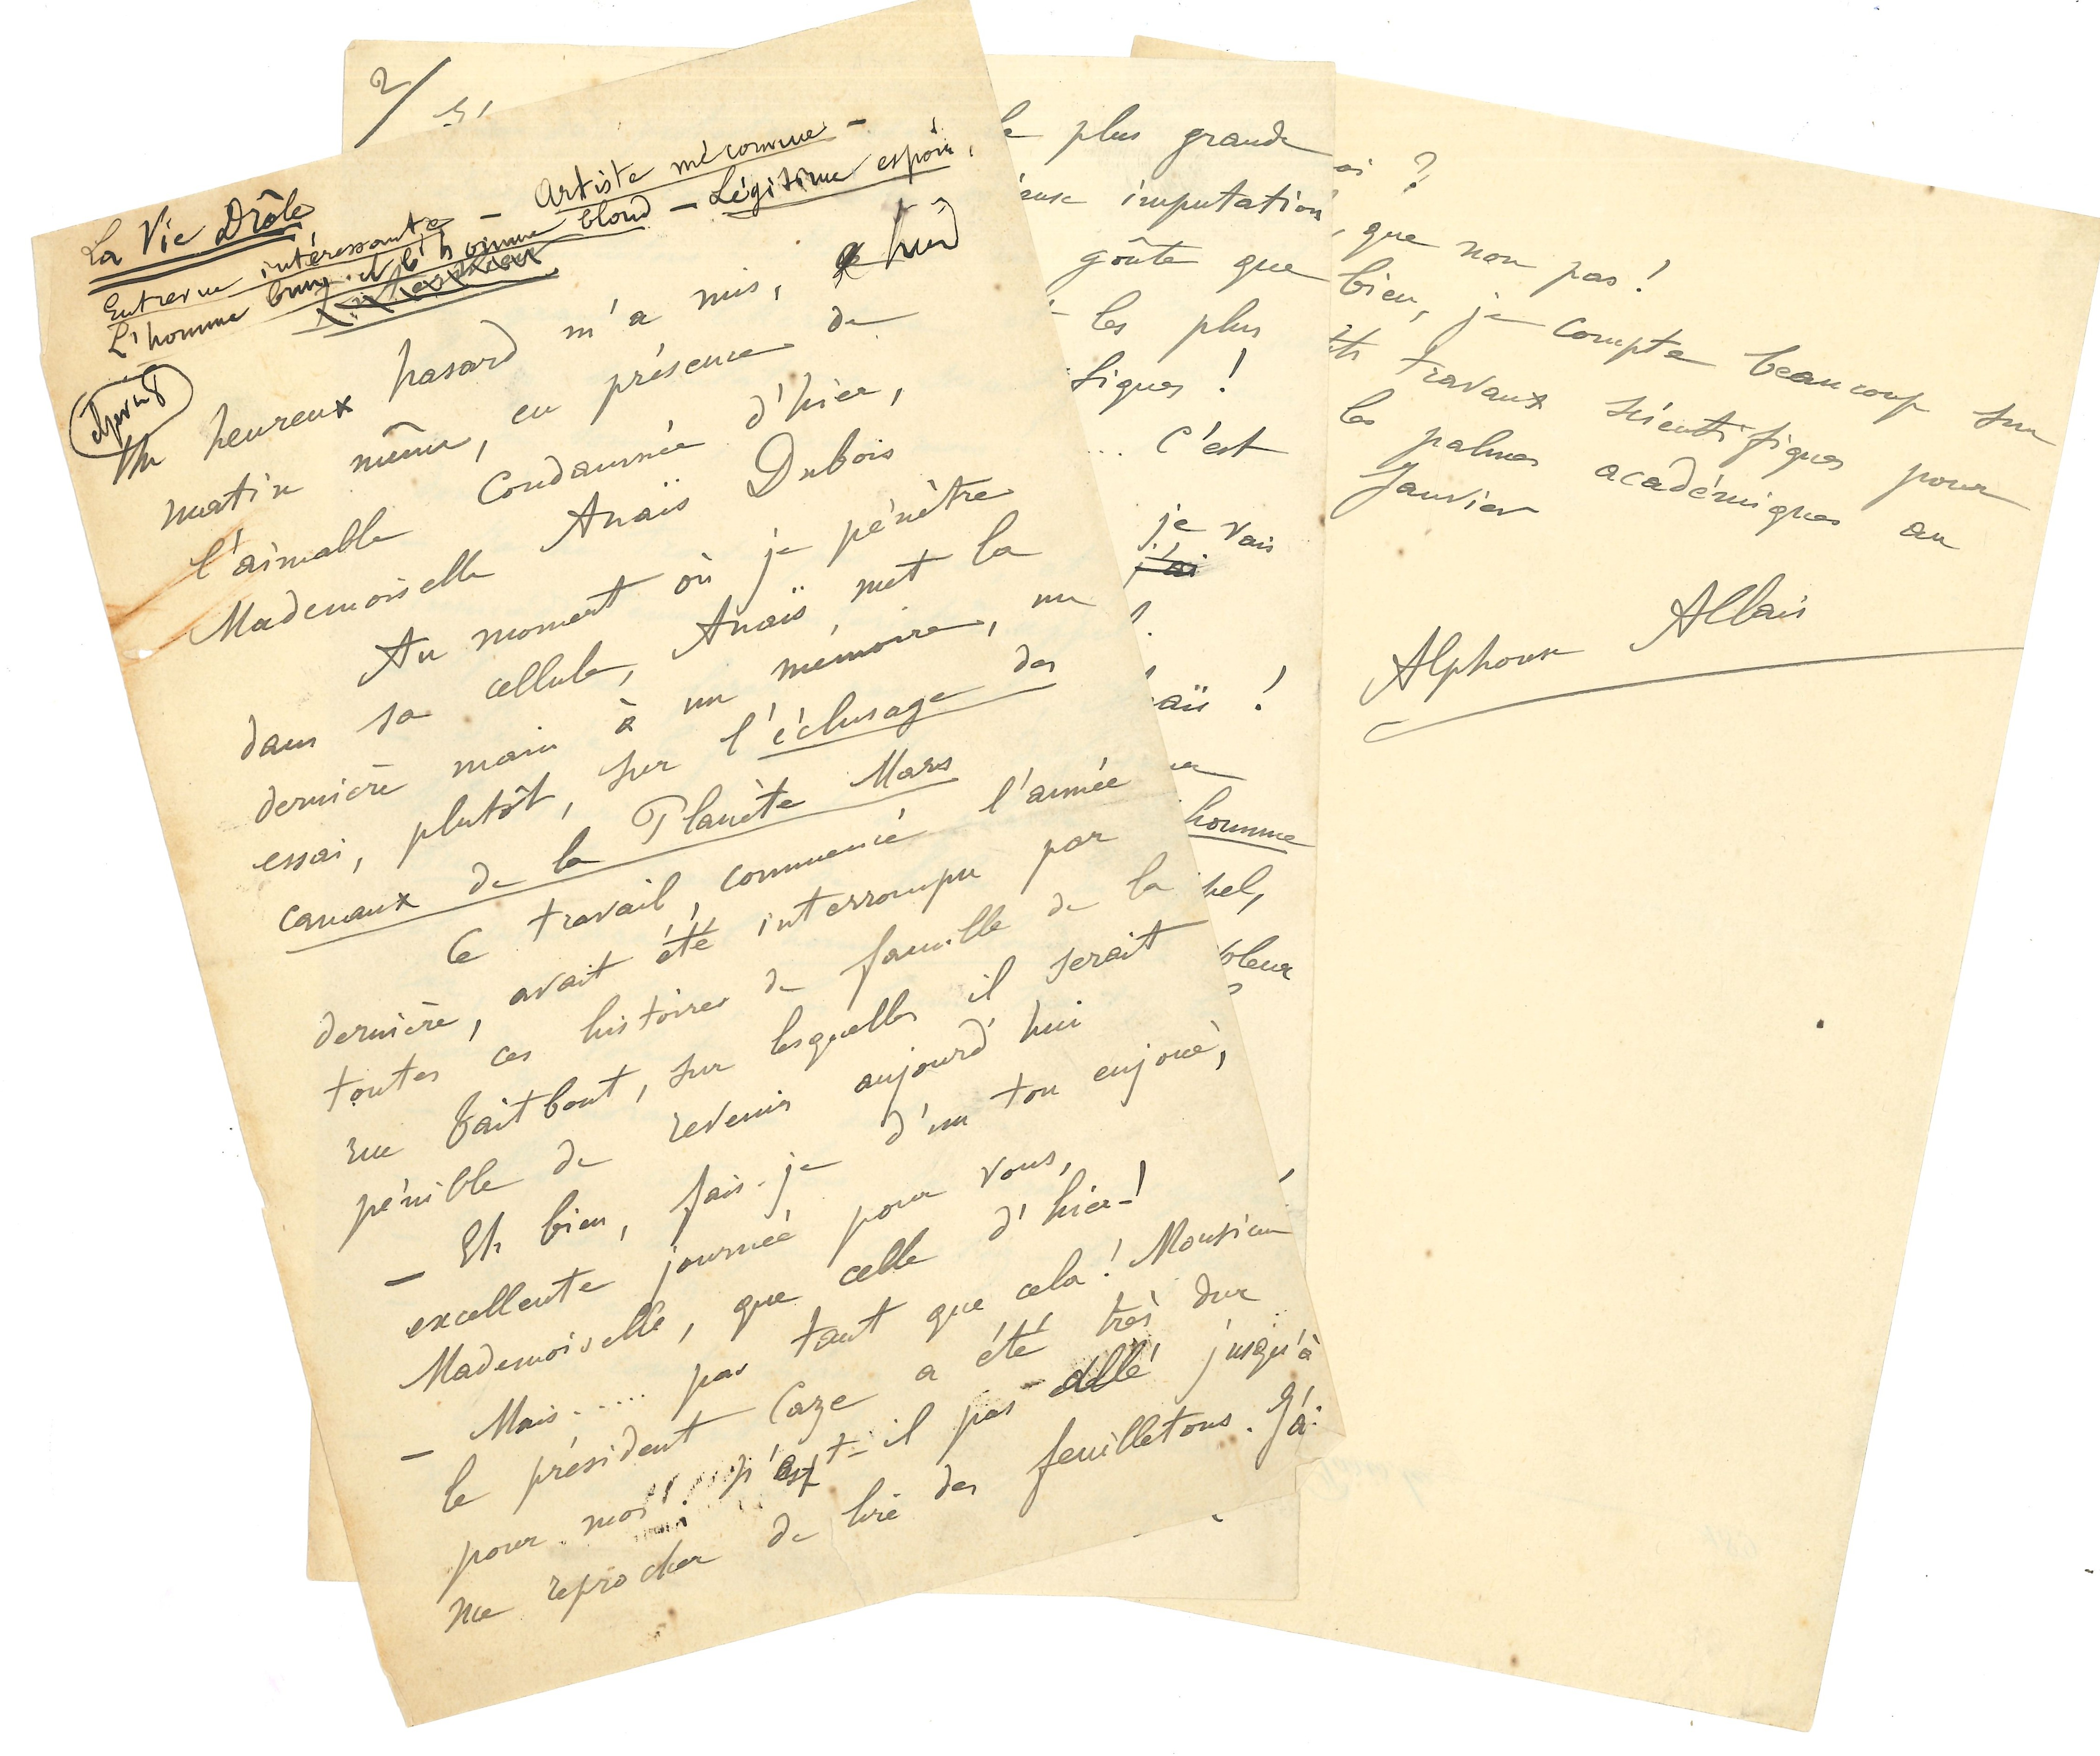 La Vie Drôle
Entrevue intéressante – Artiste méconnue –
L'homme brun et l'homme blond – Légitime espoir.
Un heureux hasard m'a mis, ce
matin même, en présence de
l'aimable condamnée d'hier,
Mademoiselle Anaïs Dubois
Au moment où je pénètre
dans sa cellule, Anaïs met la
dernière main à un mémoire, un
essai, plutôt, sur l'éclusage des
canaux de la Planète Mars
Ce travail, commencé l'année
dernière, avait été interrompu par
toutes ces histoires de famille de la
rue Taitbout, sur lesquelles il serait
pénible de revenir aujourd'hui
– Eh bien, fais-je d'un ton enjoué,
excellente journée pour vous,
Mademoiselle, que celle d'hier !
– Mais.... pas tant que cela ! Monsieur
le président Caze a été très dur
pour moi ! N'est-il pas allé jusqu'à
me reprocher de lire des feuilletons. J'ai
2/
plus grande
imputation
goûte que
les plus
fiques !
... C'est
je vais
j'ai
aïs !
homme
pleur
oi ?
, que non pas !
bien, je compte beaucoup sur
travaux scientifiques pour
les palmes académiques au
Janvier
Alphonse Allais